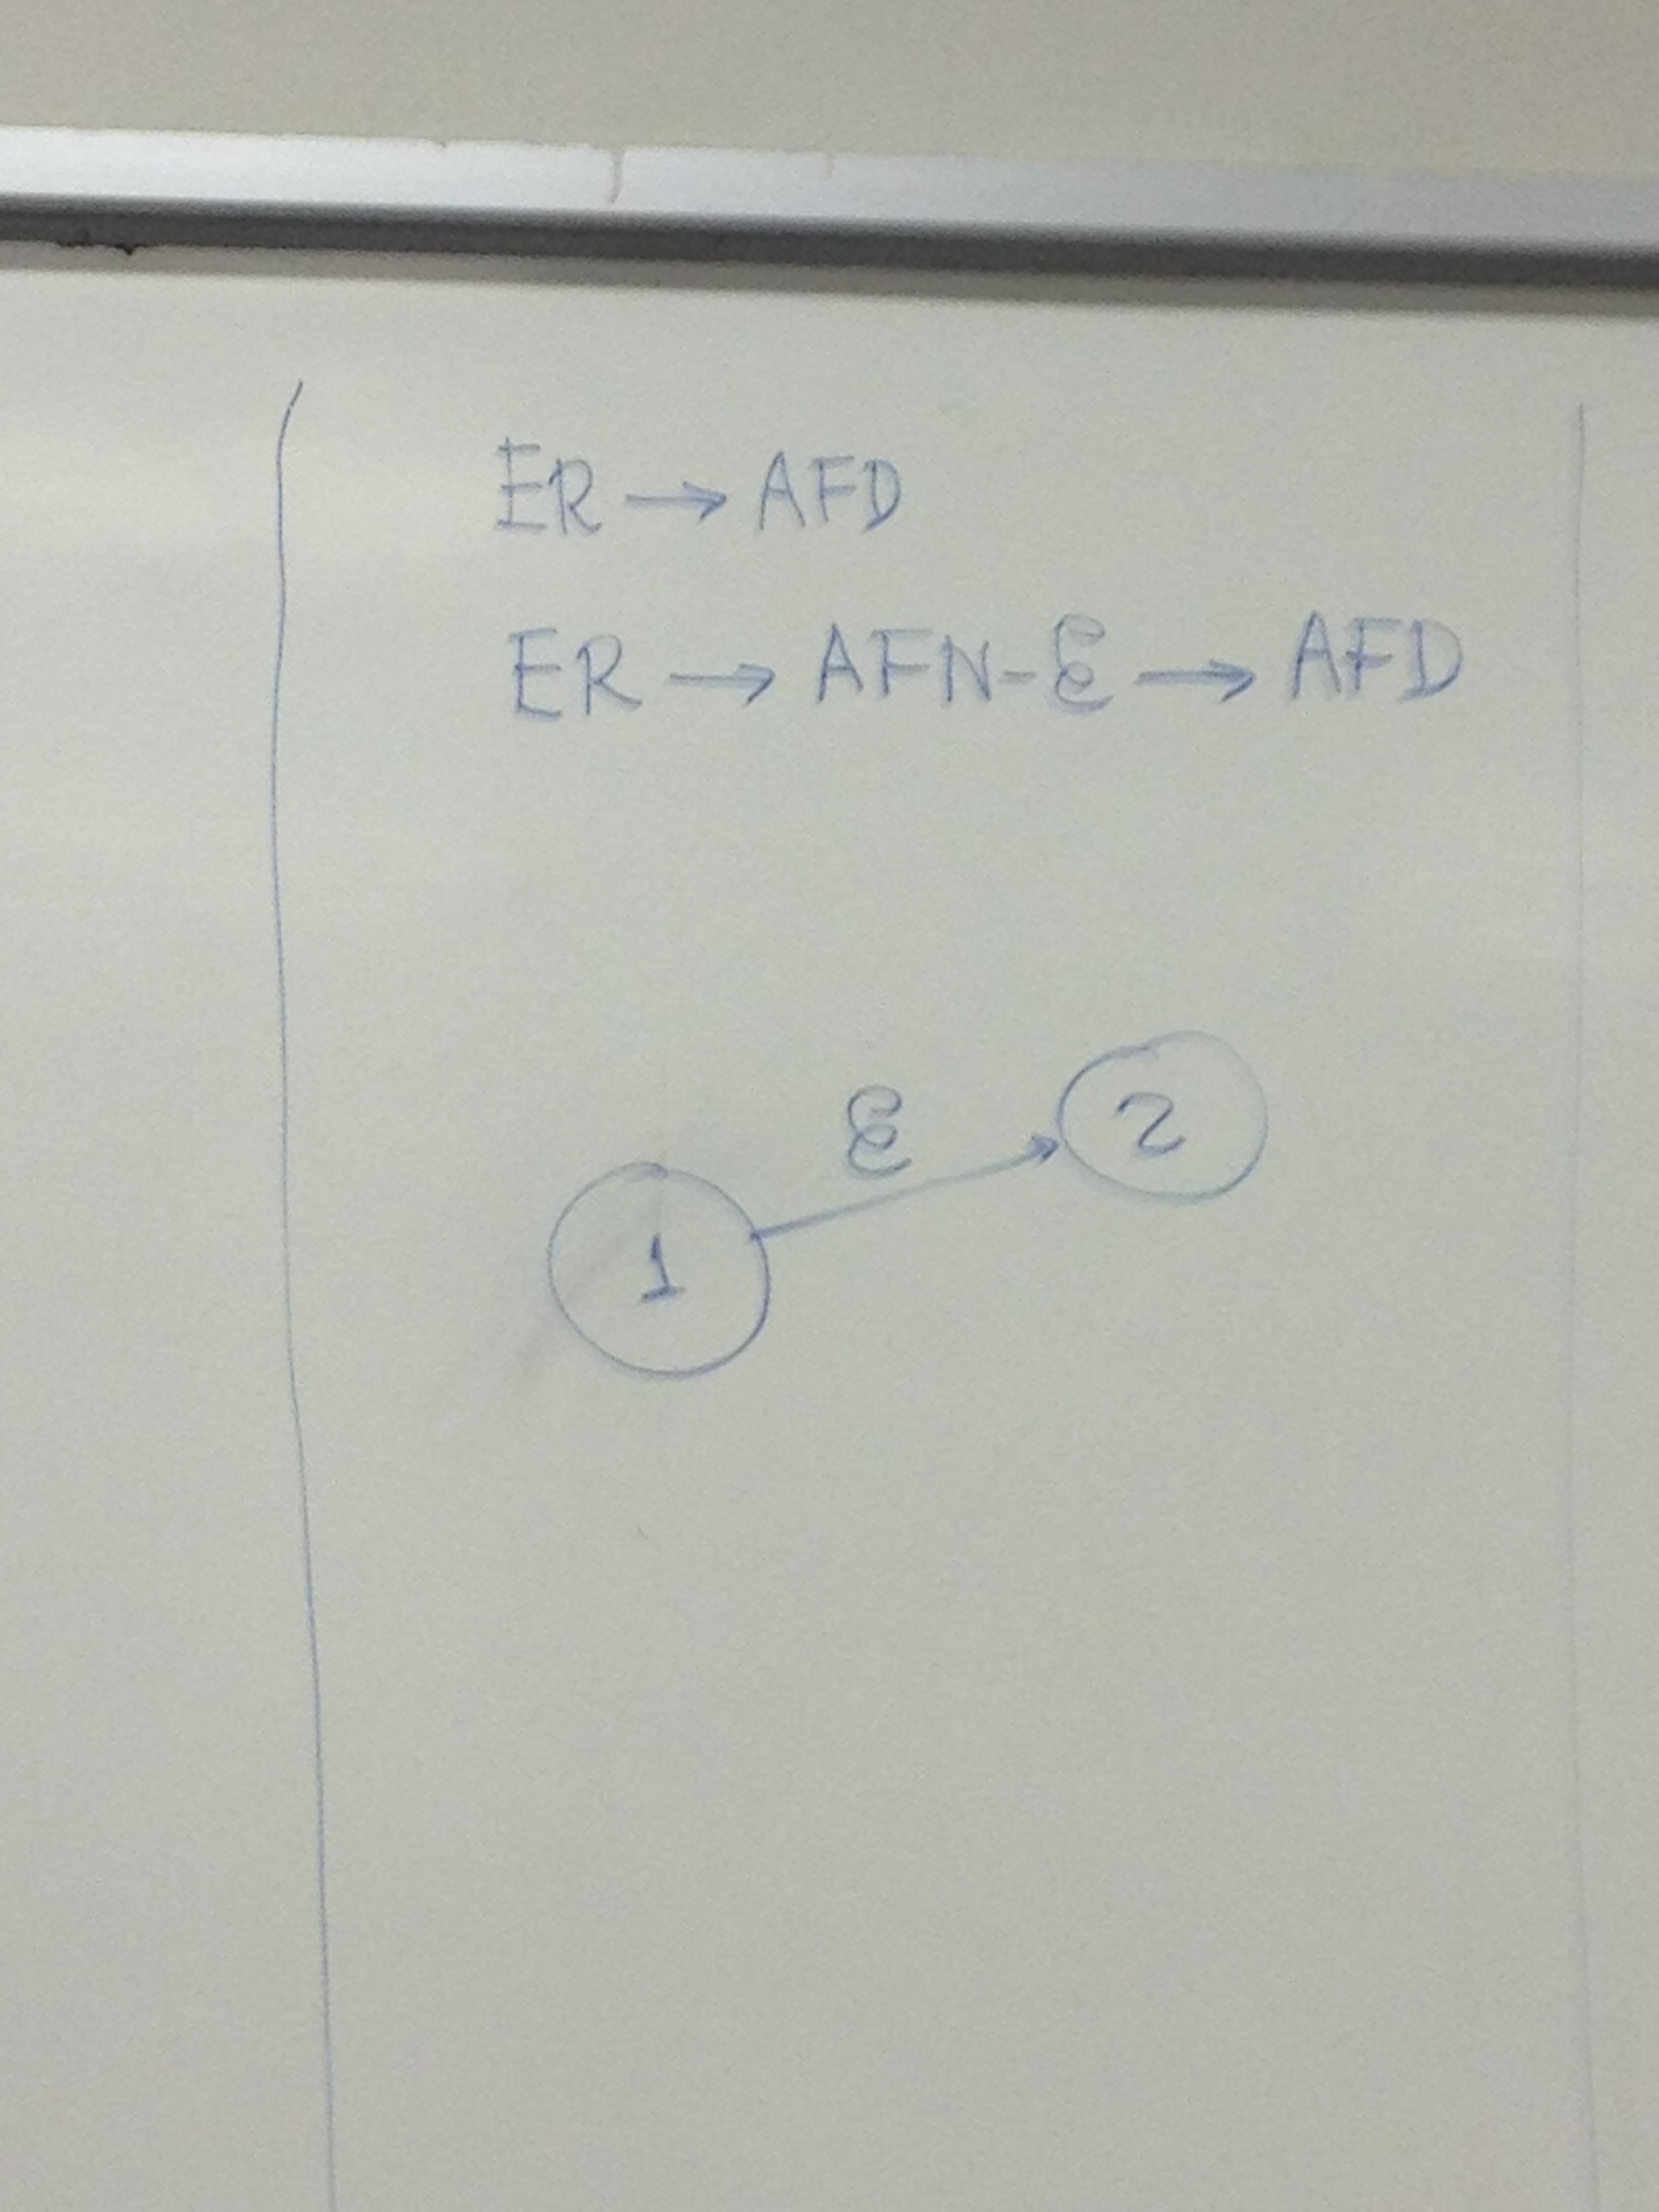 ER → AFD
ER → AFN-ε → AFD
ε
2
1